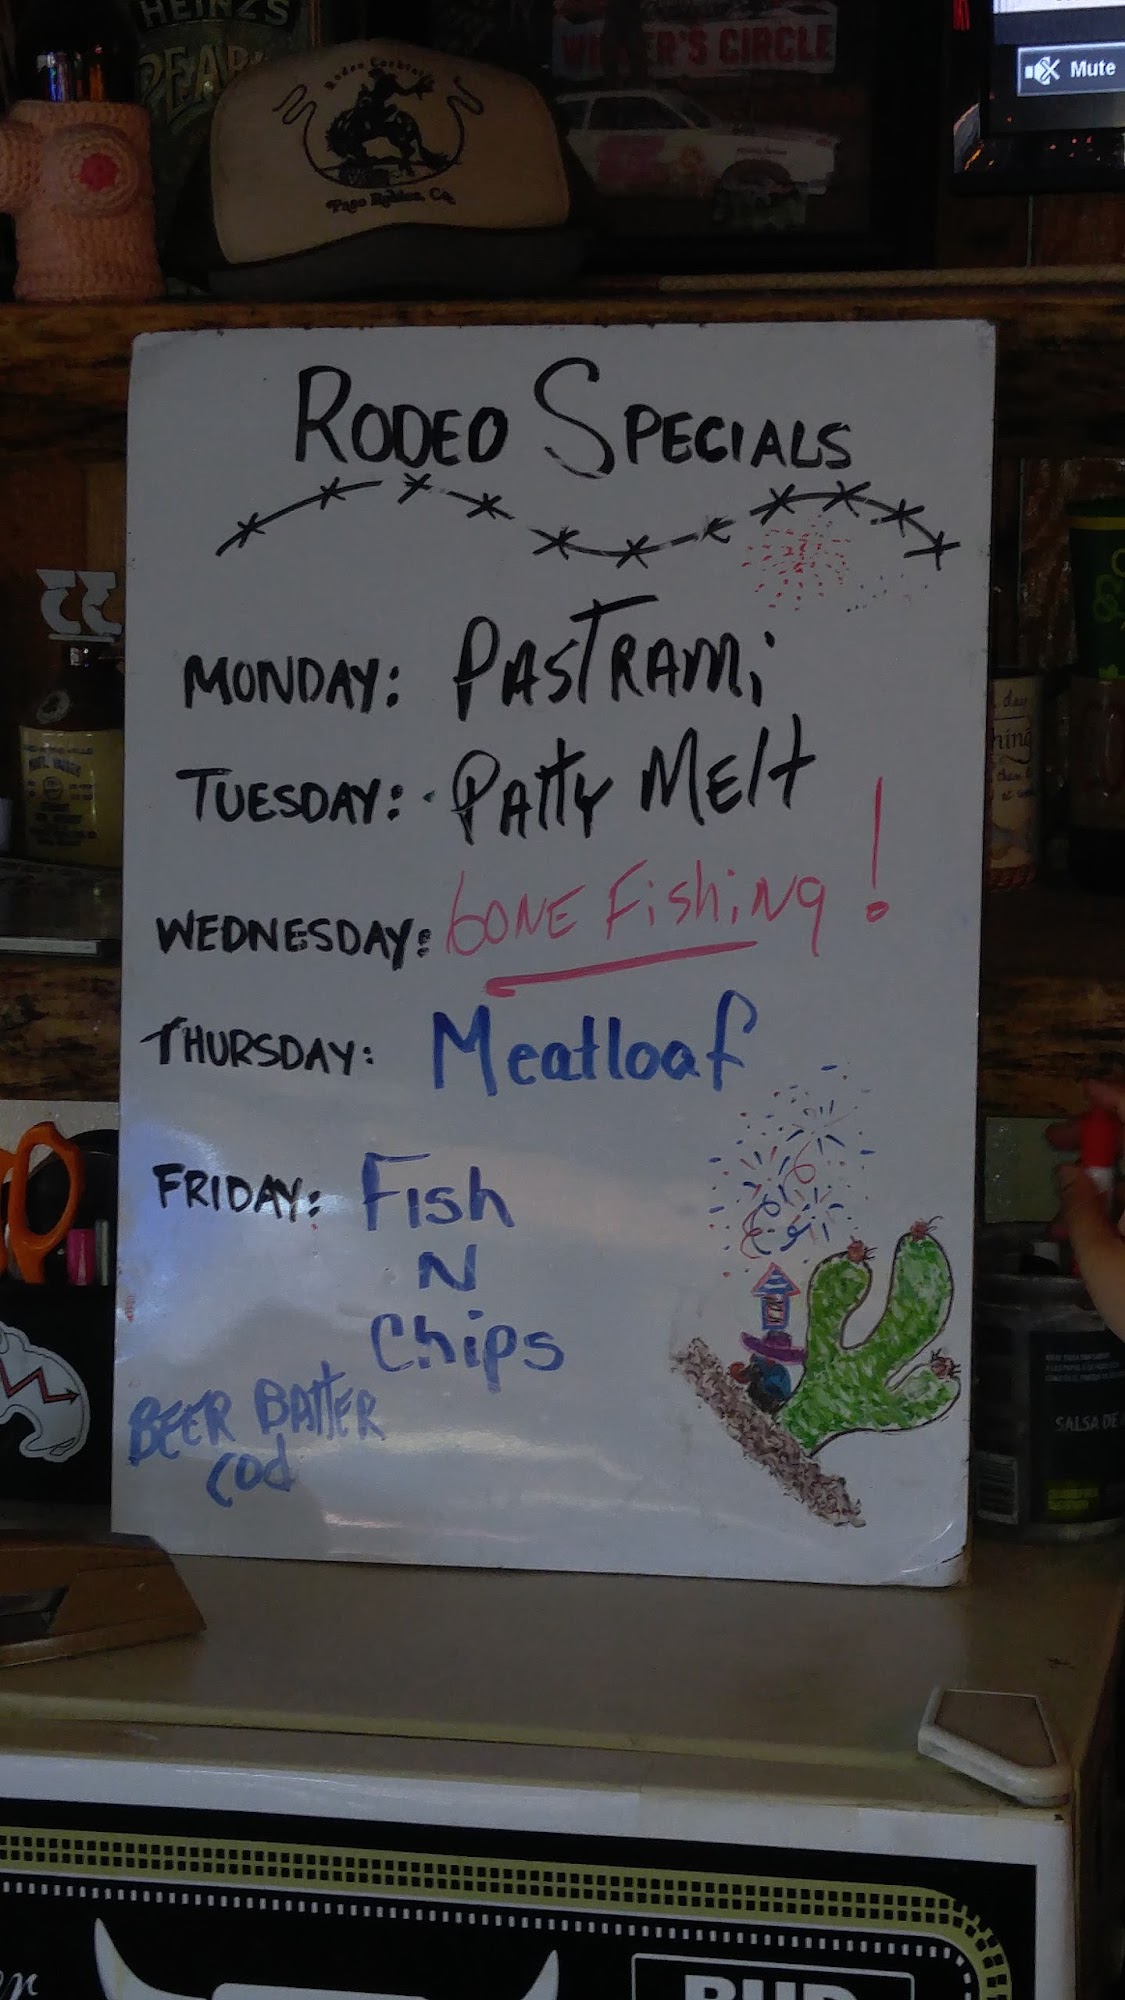 HEINZ'S
PEARL
WINNER'S CIRCLE
Mute
Rodeo Cocktails
Paso Robles, Ca.
RODEO SPECIALS
MONDAY: PASTRAMi
TUESDAY: PAttY MElt
WEDNESDAY: GONE FiShiNg!
THURSDAY: Meatloaf
FRIDAY: Fish
N
Chips
BEER BAttER
cod
day
hing
SALSA DE
BUD